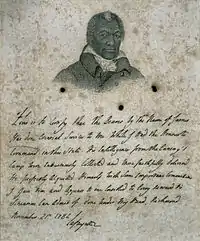 This is to Certify that the Bearer By the Name of James
Has done Essential Services to me While I Had the Honour to
Command in this State. His Intelligences from the Ennemy's
Camp were Industriously Collected and More faithfully delivered
He properly acquitted Himself with Some Important Commissions
I Gave Him and Appears to me Entitled to Every Reward his
Situation Can Admit of. Done Under my Hand, Richmond
November 21st 1784
Lafayette